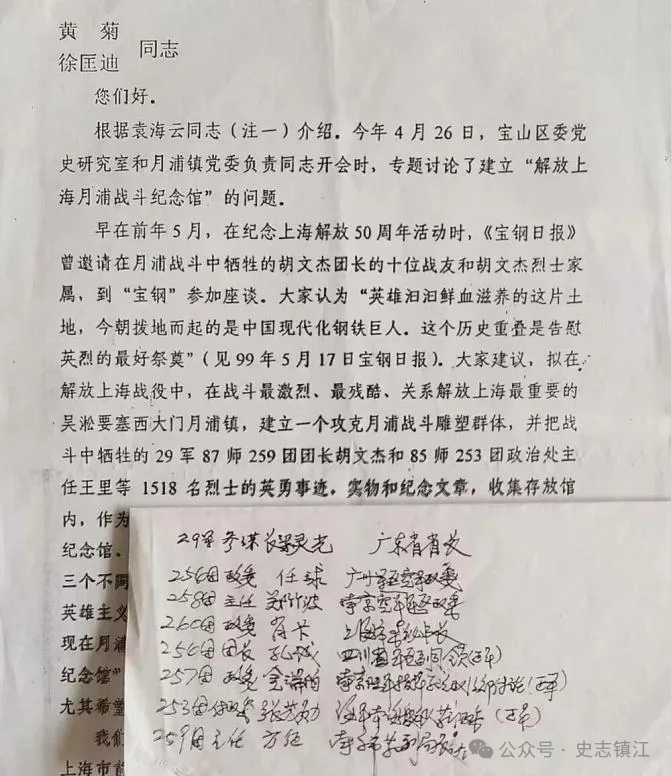 黄 菊
徐匡迪 同志
您们好。
根据袁海云同志（注一）介绍。今年4月26日，宝山区委党
史研究室和月浦镇党委负责同志开会时，专题讨论了建立“解放上
海月浦战斗纪念馆”的问题。
早在前年5月，在纪念上海解放50周年活动时，《宝钢日报》
曾邀请在月浦战斗中牺牲的胡文杰团长的十位战友和胡文杰烈士家
属，到“宝钢”参加座谈。大家认为“英雄汩汩鲜血滋养的这片土
地，今朝拨地而起的是中国现代化钢铁巨人。这个历史重叠是告慰
英烈的最好祭奠”（见99年5月17日宝钢日报）。大家建议，拟在
解放上海战役中，在战斗最激烈、最残酷、关系解放上海最重要的
吴淞要塞西大门月浦镇，建立一个攻克月浦战斗雕塑群体，并把战
斗中牺牲的29军87师259团团长胡文杰和85师253团政治处主
任王里等1518名烈士的英勇事迹，实物和纪念文章，收集存放馆
内，作为
纪念馆、
三个不同
英雄主义
现在月浦
纪念馆”
尤其希望
我们
上海市前
29军 参谋长梁灵光 广东省省长
256团 政委 任球 广州
258团 主任 郑竹波 南京空军
260团 政委 肖卡 上海
256团 团长 四川省军区
257团 政委 南京
253团
259团 主任 方征 南京市
公众号·史志镇江